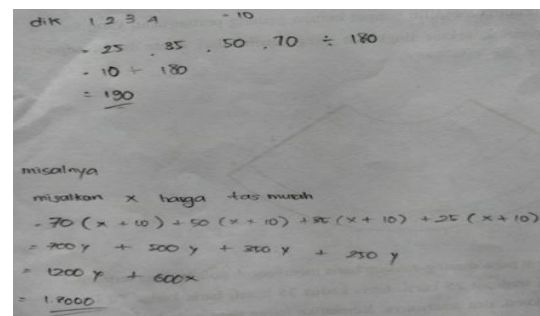 dik 1 2 3 4 - 10
- 25 . 35 . 50 . 70 ÷ 180
- 10 + 180
= 190
misalnya
misalkan x harga tas murah
- 70 (x + 10) + 50 (x + 10) + 35 (x + 10) + 25 (x + 10)
= 700 y + 500 y + 350 y + 250 y
= 1200 y + 600x
= 1.8000